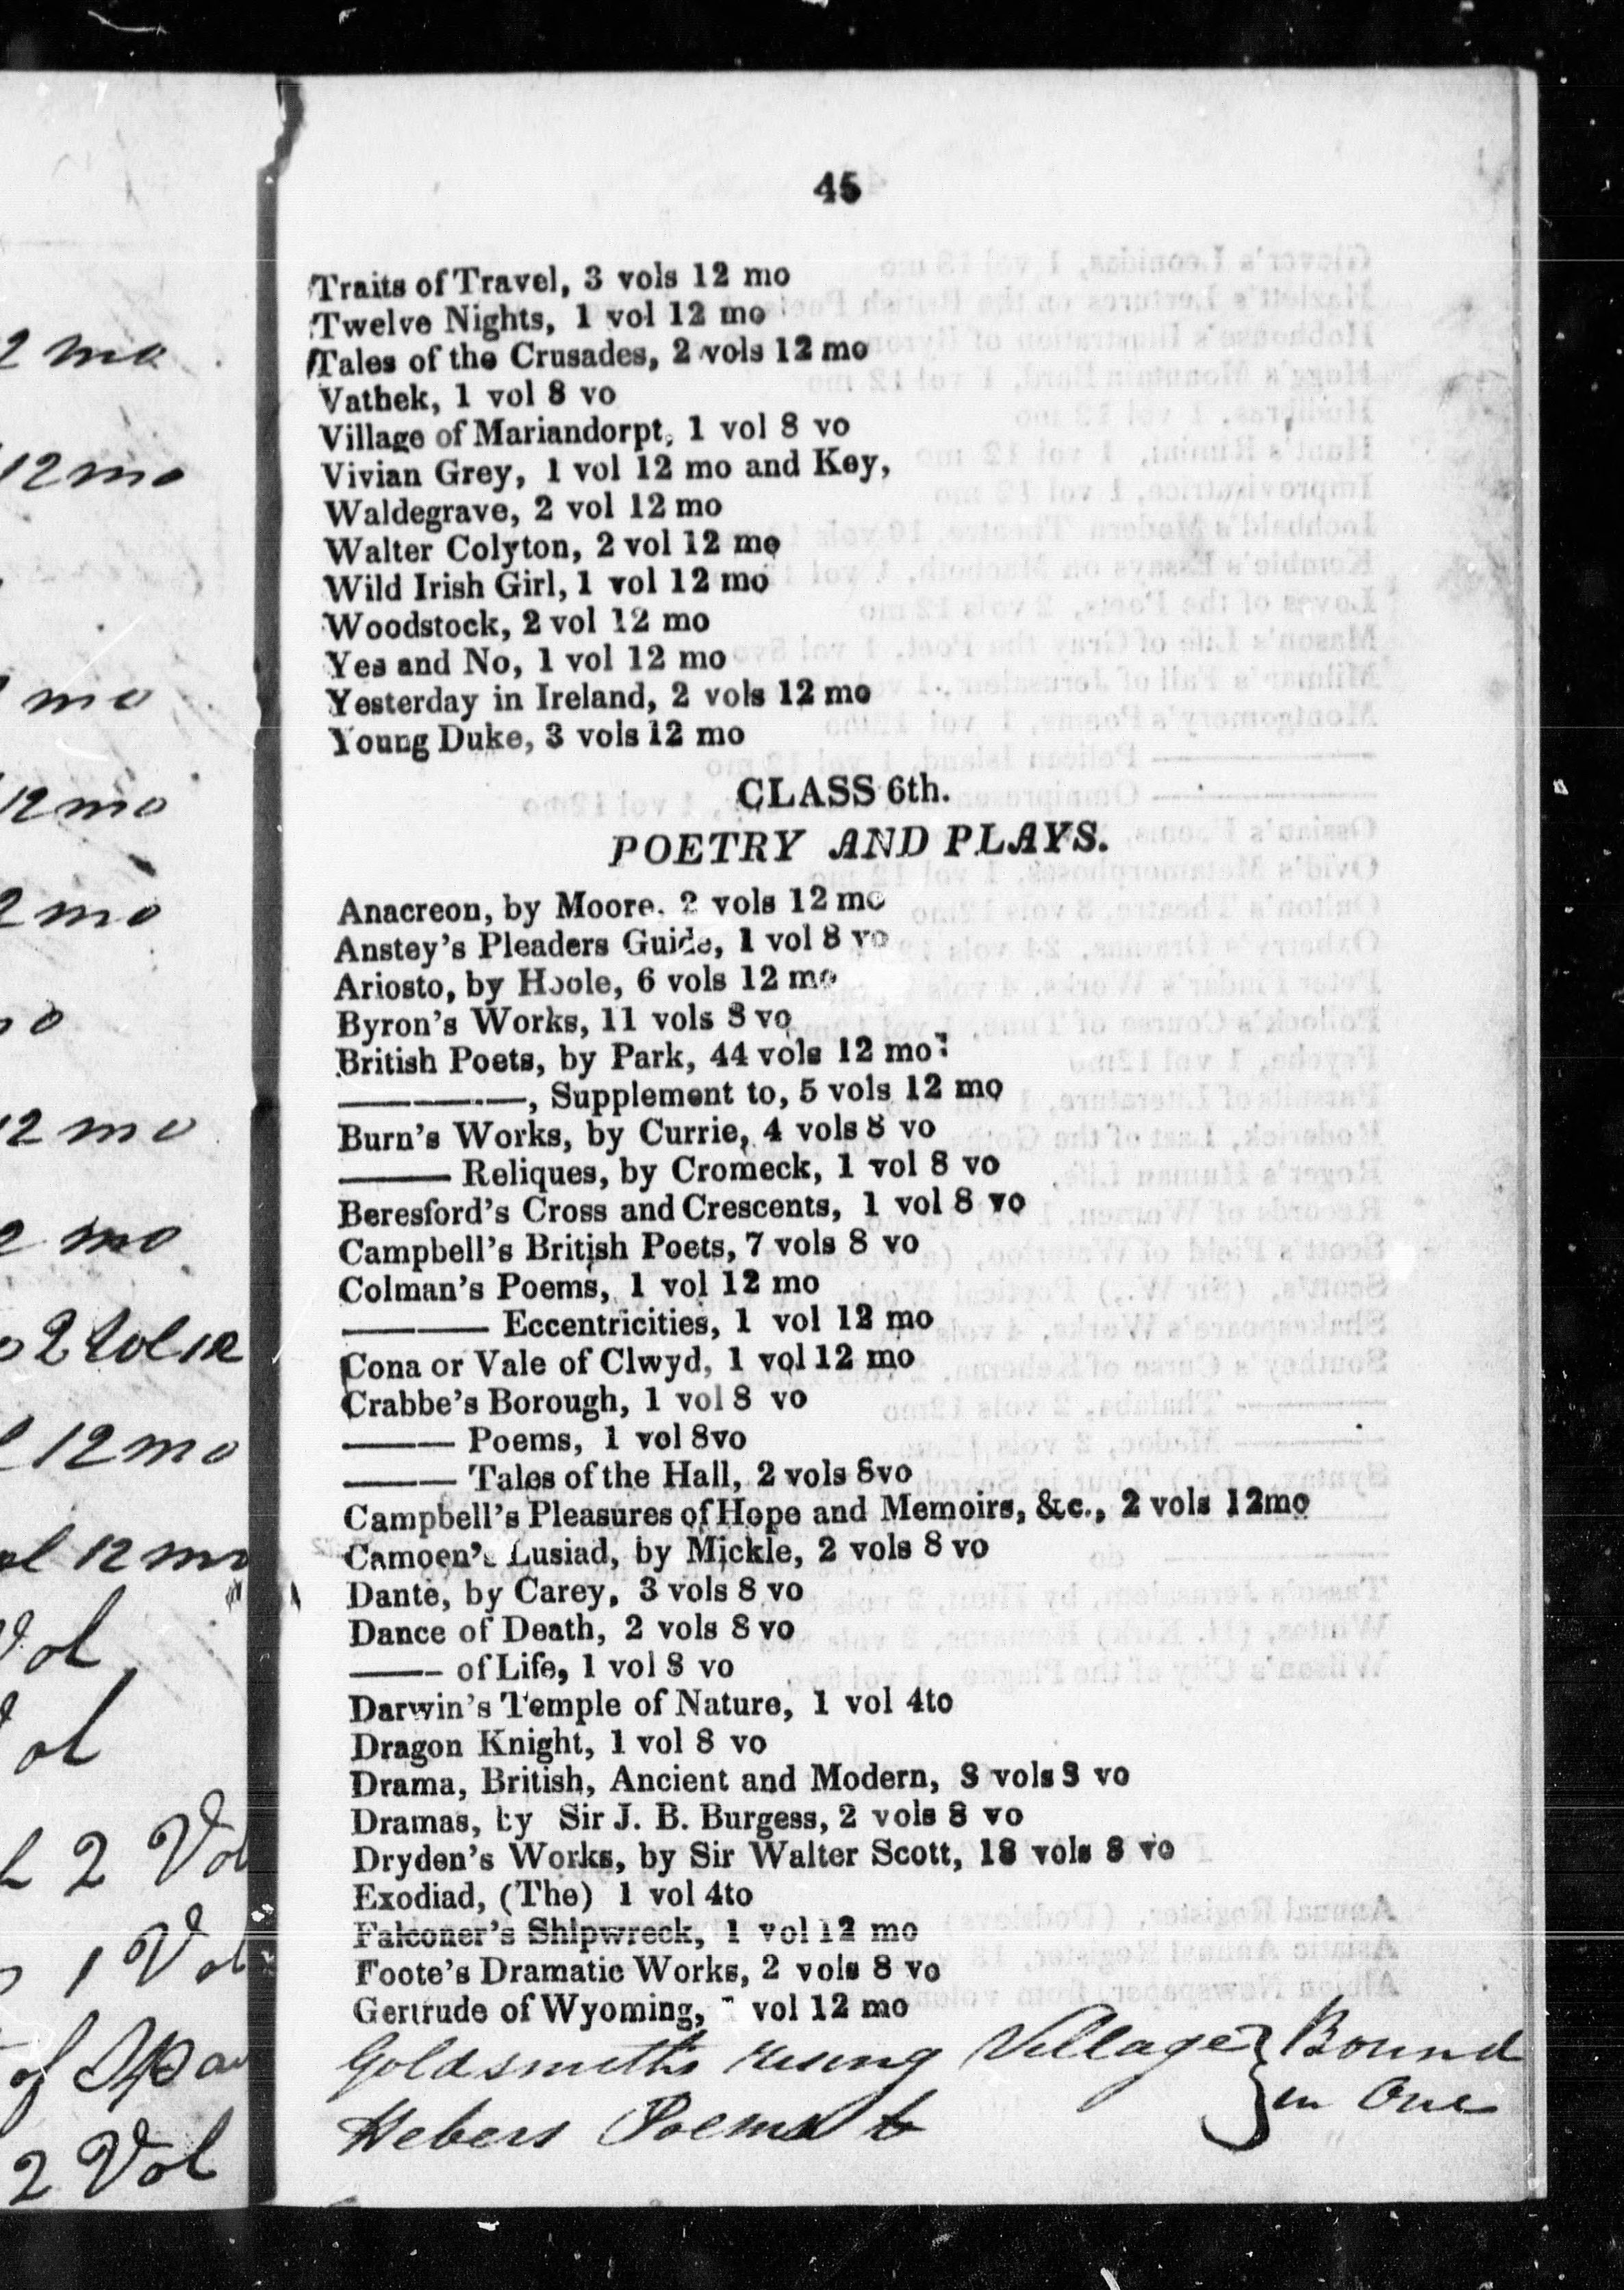 45
Traits of Travel, 3 vols 12 mo
Twelve Nights, 1 vol 12 mo
Tales of the Crusades, 2 vols 12 mo
Vathek, 1 vol 8 vo
Village of Mariandorpt, 1 vol 8 vo
Vivian Grey, 1 vol 12 mo and Key,
Waldegrave, 2 vol 12 mo
Walter Colyton, 2 vol 12 mo
Wild Irish Girl, 1 vol 12 mo
Woodstock, 2 vol 12 mo
Yes and No, 1 vol 12 mo
Yesterday in Ireland, 2 vols 12 mo
Young Duke, 3 vols 12 mo
CLASS 6th.
POETRY AND PLAYS.
Anacreon, by Moore, 2 vols 12 mo
Anstey's Pleaders Guide, 1 vol 8 vo
Ariosto, by Hoole, 6 vols 12 mo
Byron's Works, 11 vols 8 vo
British Poets, by Park, 44 vols 12 mo
————, Supplement to, 5 vols 12 mo
Burn's Works, by Currie, 4 vols 8 vo
——— Reliques, by Cromeck, 1 vol 8 vo
Beresford's Cross and Crescents, 1 vol 8 vo
Campbell's British Poets, 7 vols 8 vo
Colman's Poems, 1 vol 12 mo
———— Eccentricities, 1 vol 12 mo
Cona or Vale of Clwyd, 1 vol 12 mo
Crabbe's Borough, 1 vol 8 vo
——— Poems, 1 vol 8vo
——— Tales of the Hall, 2 vols 8vo
Campbell's Pleasures of Hope and Memoirs, &c., 2 vols 12mo
Camoen's Lusiad, by Mickle, 2 vols 8 vo
Dante, by Carey, 3 vols 8 vo
Dance of Death, 2 vols 8 vo
——— of Life, 1 vol 8 vo
Darwin's Temple of Nature, 1 vol 4to
Dragon Knight, 1 vol 8 vo
Drama, British, Ancient and Modern, 8 vols 8 vo
Dramas, by Sir J. B. Burgess, 2 vols 8 vo
Dryden's Works, by Sir Walter Scott, 18 vols 8 vo
Exodiad, (The) 1 vol 4to
Falconer's Shipwreck, 1 vol 12 mo
Foote's Dramatic Works, 2 vols 8 vo
Gertrude of Wyoming, vol 12 mo
Goldsmiths rising Village } Bound
Hebers Poems } in One
2 mo
12 mo
mo
12 mo
2 mo
12 mo
2 mo
2 Vol 12
12 mo
12 mo
Vol
ol
2 Vol
1 Vol
of
2 Vol